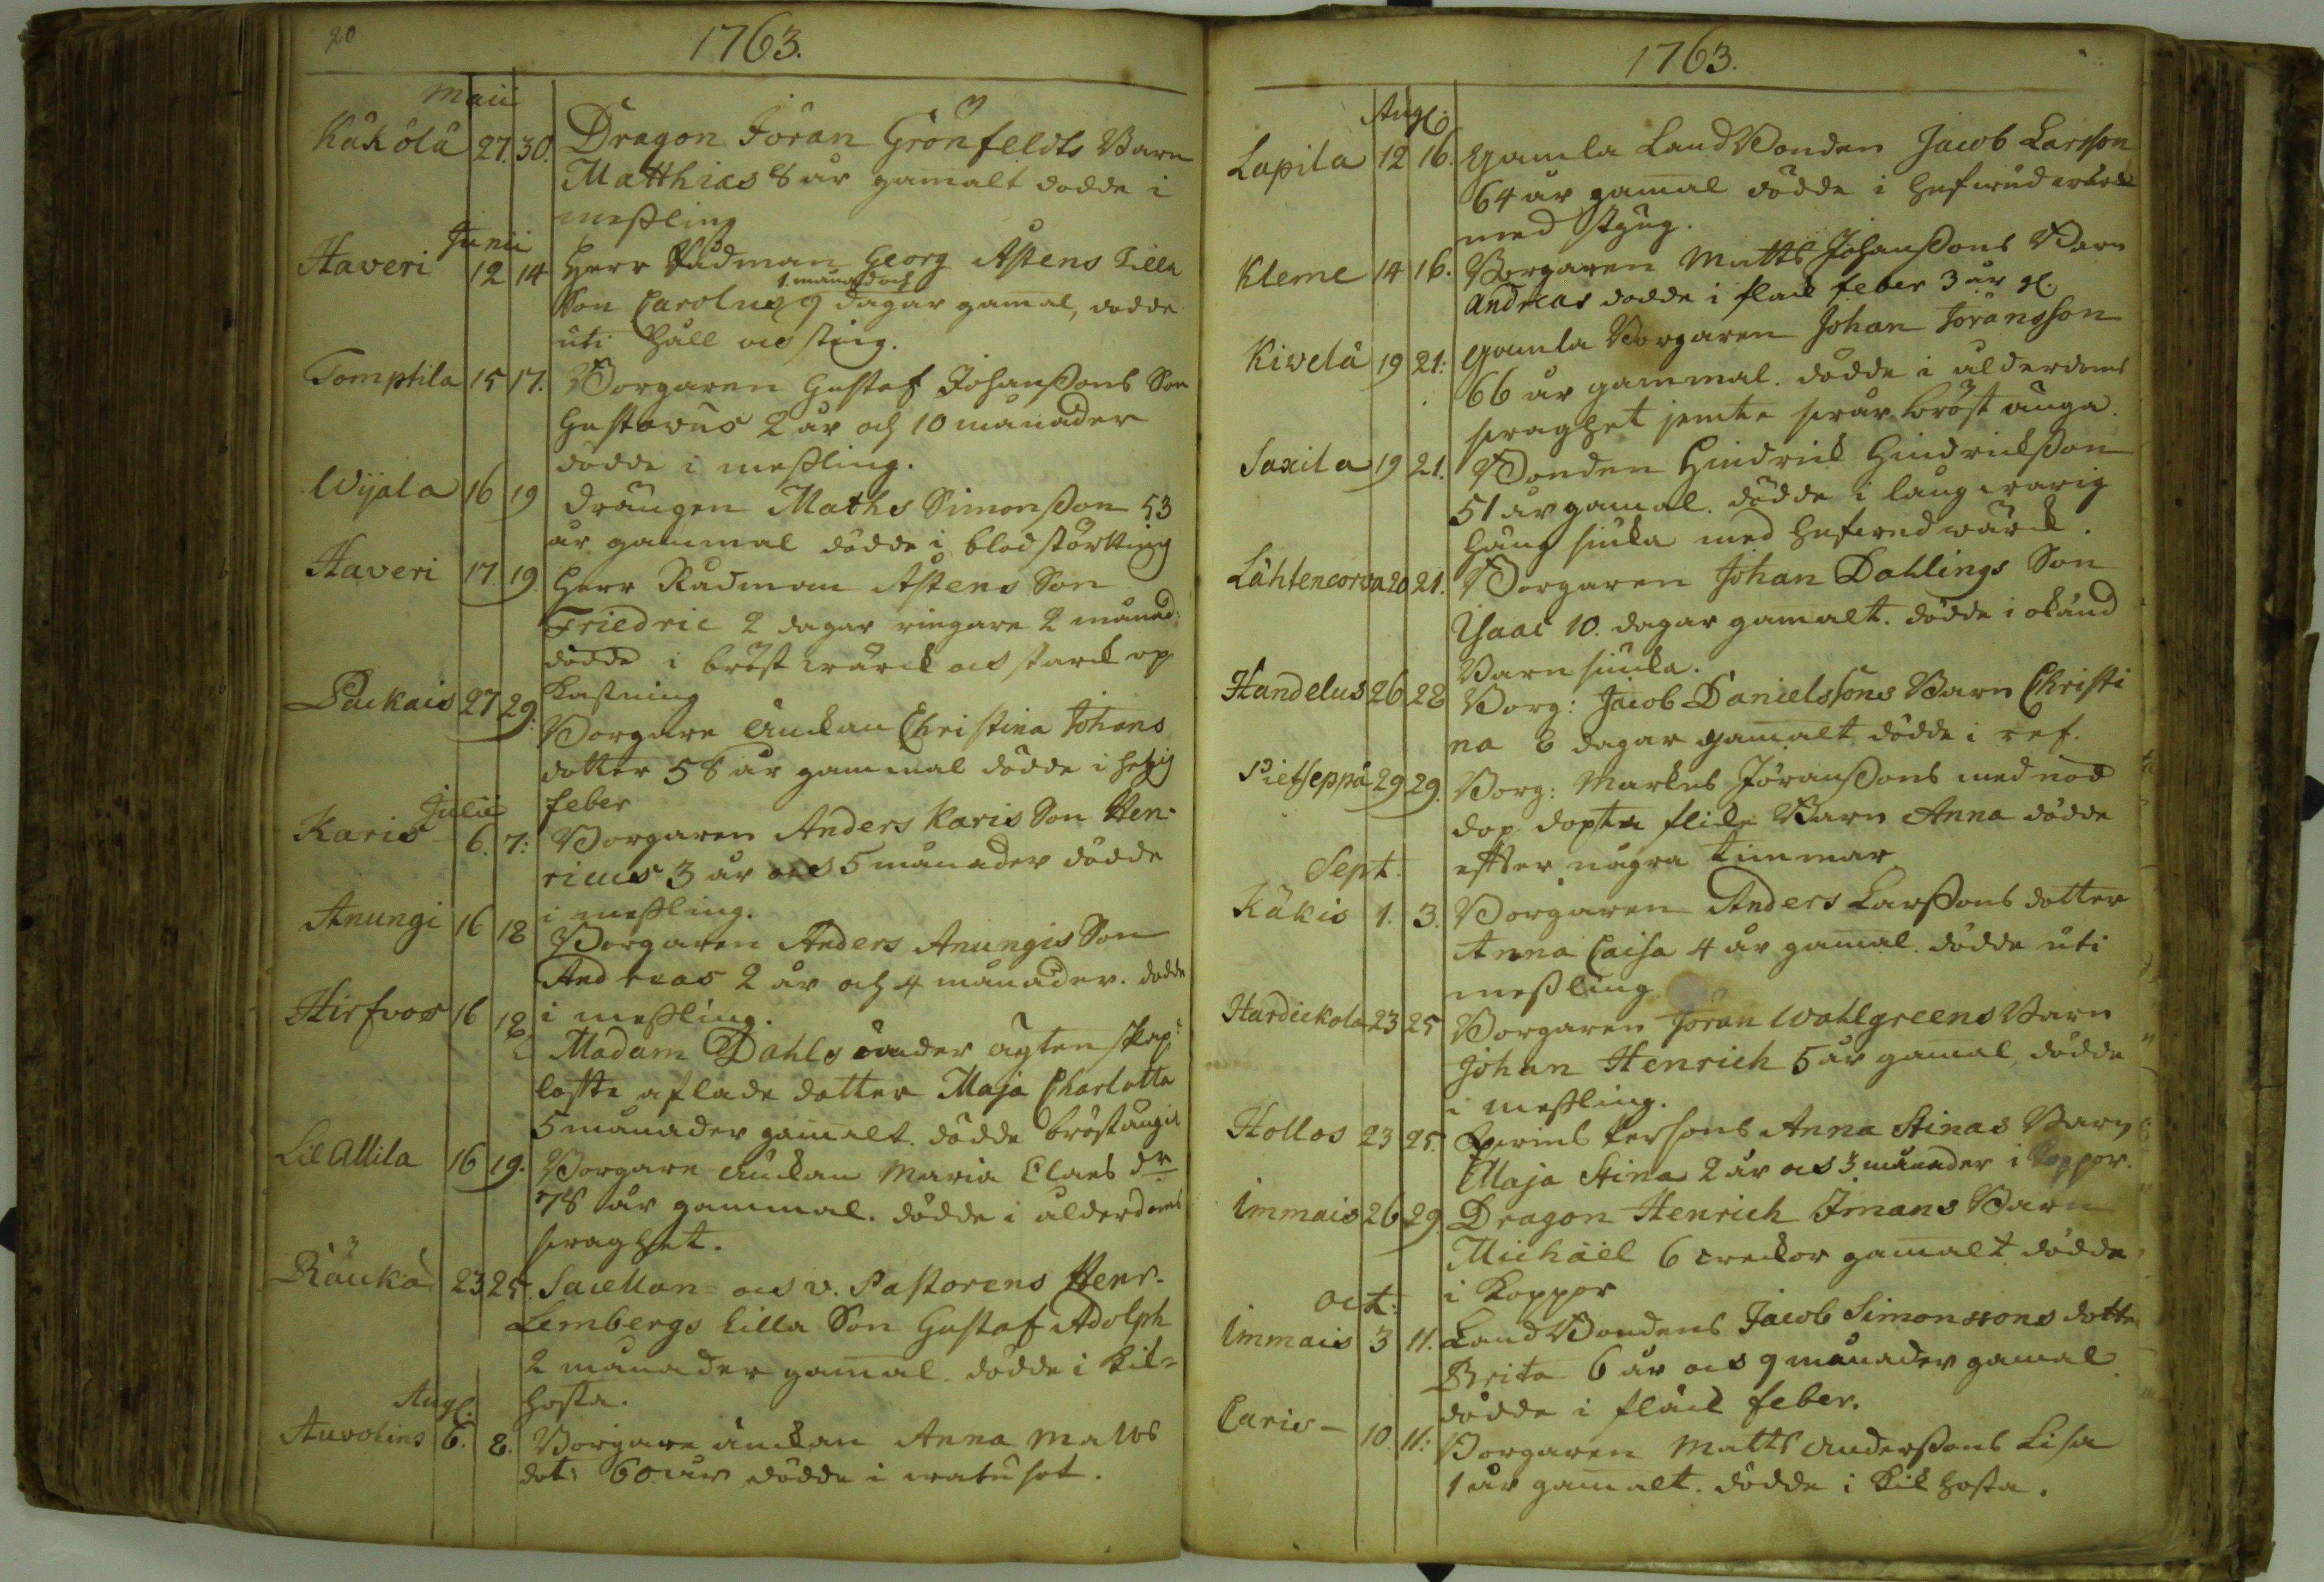 20
1763.
Maii
Kåkola 27. 30. Dragon Jöran Grönfeldts Barn
Matthias 8 år gamalt dödde i
meßling
Junii
Haveri 12 14 Herr Rådman Georg Åstens lilla
1. månad och
Son Carolus 9 dagar gamal, dödde
uti håll och sting.
Tomptila 15 17. Borgaren Gustaf Johanßons Son
Gustavus 2 år och 10 månader
dödde i meßling.
Wijala 16 19 drängen Maths Simonßon 53
år gammal dödde i blodstörtning
Haveri 17. 19. Herr Rådman Åstens Son
Friedric 2 dagar ringare 2 månad:
dödde i bröst wärck och starck up
kastning
Packais 27 29: Borgare Änckan Christina Johans
dotter 58 år gammal dödde i hetzig
feber
Julii
Karis 6. 7: Borgaren Anders Karis Son Hen-
ricus 3 år och 5 månader dödde
i meßling.
Anungi 16 18 Borgaren Anders Anungis Son
Andreas 2 år och 4 månader. dödde
i meßling.
Hirfvos 16 18 Madam Dahls under ägtenskaps
löfte aflade dotter Maja Charlotta
5 månader gamalt. dödde bröstängil
Lil Allila 16 19. Borgare Änckan Maria Claes dr
78 år gammal. dödde i ålderdoms
swaghet.
Räukä 23 25. Sacellan- och v. Pastorens Henr.
Lembergs lilla Son Gustaf Adolph
2 månader gamal. dödde i Kik-
hosta.
Aug:
Auvohins 6. 8. Borgare änckan Anna Matts
dot: 60 år dödde i watusot.
1763.
Aug:
Lapila 12 16. Gamla Land Bonden Jacob Larsson
64 år gamal dödde i hufwudwärck
med styng.
Kleme 14 16. Borgaren Matts Johanßons Barn
Andreas dödde i fläck feber 3 år gl.
Kivelä 19 21: Gamla Borgaren Johan Jöransson
66 år gammal. dödde i ålderdoms
swaghet jemte swår bröst ånga.
Saxila 19 21. Bonden Hindrick Hindricksson
51 år gamal. dödde i långwarig
häng siuka med hufwudwärck.
Lähtencorva 20 21. Borgaren Johan Dahlings Son
Isaac 10. dagar gamalt. dödde i okänd
Barn siuka.
Handelus 26 28 Borg: Jacob Danielssons Barn Christi
na 8 dagar gamalt dödde i ref.
Pietseppä 29 29. Borg: Markus Jöranßons med nöd
dop döpta flicke Barn Anna dödde
efter några timmar
Sept.
Käkis 1. 3. Borgaren Anders Larßons dotter
Anna Caisa 4 år gamal. dödde uti
meßling
Hardickola 23 25 Borgaren Jöran Wahlgreens Barn
Johan Henrich 5 år gamal, dödde
i meßling.
Hollos 23 25. Anna Stinas Barn
Maja Stina 2 år och 3 månader i Koppor.
Immais 26 29. Dragon Henrich Imans Barn
Michäel 6 weckor gamalt dödde
i Koppor
Oct:
Immais 3 11. Land Bondens Jacob Simonssons dotter
Brita 6 år och 9 månader gamal
dödde i fläck feber.
Caris - 10. 11: Borgaren Matts Anderßons Lisa
1 år gamalt. dödde i Kik hosta.